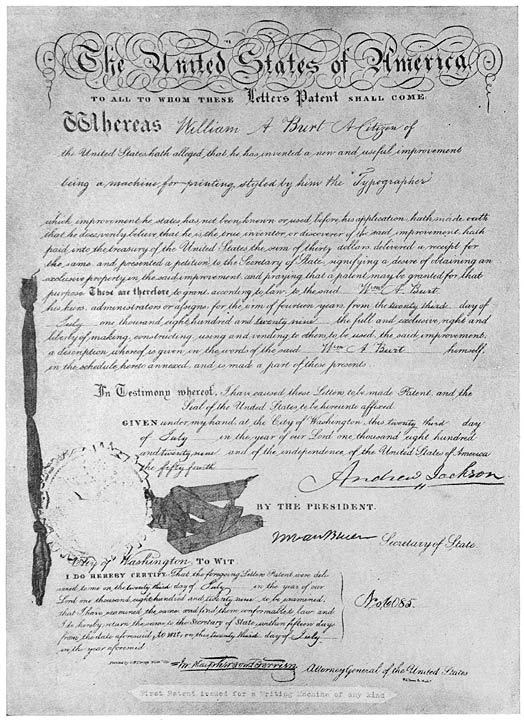 The United States of America
TO ALL TO WHOM THESE Letters Patent SHALL COME.
Whereas William A Burt A Citizen of
the United States hath alleged, that he has invented a new and useful improvement
being a machine for printing, styled by him the "Typographer"
which improvement, he states, has not been known or used before his application, hath made oath
that he does verily believe that he is the true inventor or discoverer of the said improvement, hath
paid into the treasury of the United States, the sum of thirty dollars, delivered a receipt for
the same and presented a petition to the Secretary of State, signifying a desire of obtaining an
exclusive property in the said improvement, and praying that a patent may be granted for that
purpose. These are therefore to grant, according to law, to the said Wm A Burt
his heirs, administrators or assigns, for the term of fourteen years, from the twenty third day of
July one thousand eight hundred and twenty nine the full and exclusive right and
liberty of making, constructing, using and vending to others to be used, the said improvement,
a description whereof is given in the words of the said Wm A Burt himself,
in the schedule hereto annexed, and is made a part of these presents.
In Testimony whereof, I have caused these Letters to be made Patent, and the
Seal of the United States to be hereunto affixed.
GIVEN under my hand, at the City of Washington, this twenty third day
of July in the year of our Lord one thousand eight hundred
and twenty nine and of the independence of the United States of America
the fifty fourth
Andrew Jackson
BY THE PRESIDENT.
Secretary of State
City of Washington, TO WIT
I DO HEREBY CERTIFY, That the foregoing Letters Patent were deli-
vered to me on the twenty third day of July in the year of our
Lord one thousand eight hundred and twenty nine to be examined,
that I have examined the same and find them conformable to law and
I do hereby return the same to the Secretary of State, within fifteen days
from the date aforesaid, to wit, on this twenty third day of July
in the year aforesaid.
No 6085.
Attorney General of the United States
First Patent issued for a Writing Machine of any kind